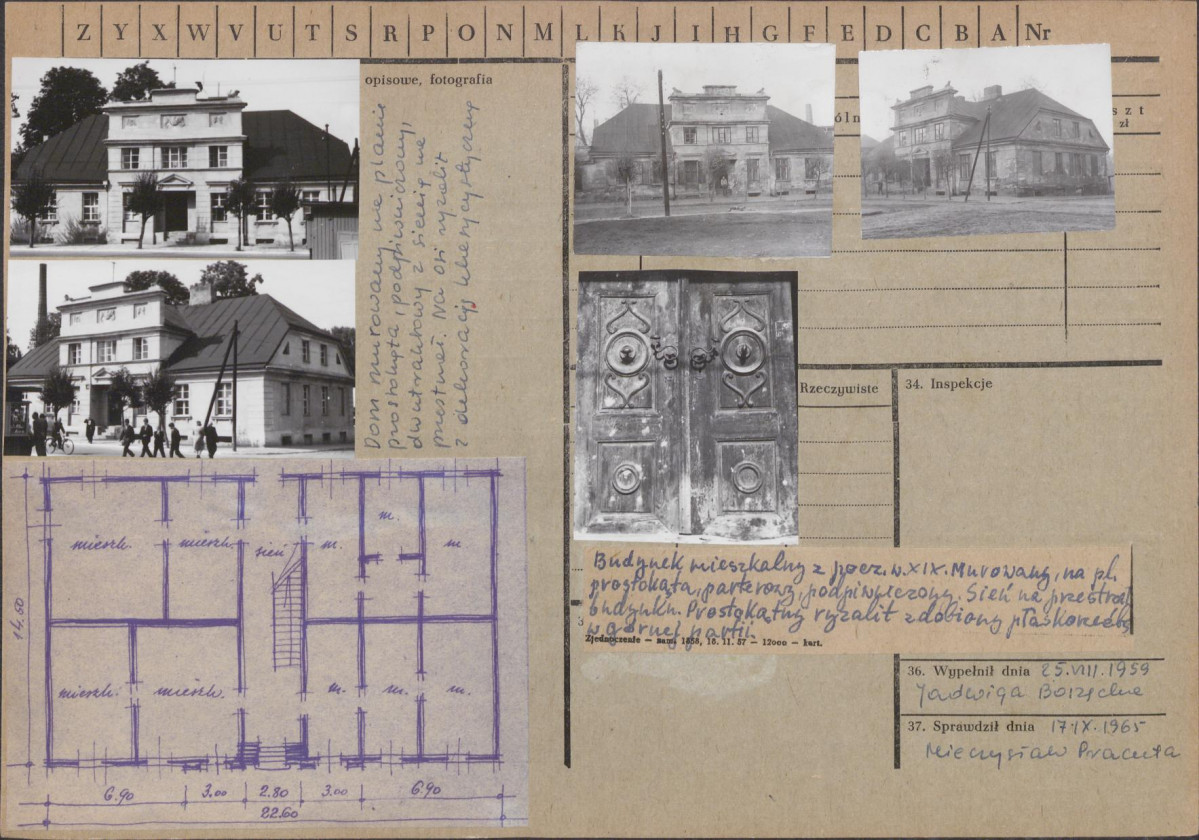 Z Y X W V U T S R P O N M L K J I H G F E D C B A Nr
opisowe, fotografia
Dom murowany na planie
prostokąta, podpiwniczony,
dwutraktowy z sienią na
przestrzał. Na osi ryzalit
z dekoracją klasycystyczną
mieszk.
mieszk.
sień
m.
m.
m.
mieszk.
mieszk.
m.
m.
m.
14.50
6.90
3.00
2.80
3.00
6.90
22.60
zł
Rzeczywiste
34. Inspekcje
Budynek mieszkalny z pocz. w. XIX. Murowany, na pl.
prostokąta, parterowy, podpiwniczony. Sień na przestrzał
budynku. Prostokątny ryzalit zdobiony płaskorzeźbą
w górnej partii.
Zjednoczenie — zam. 1858, 16. 11. 57 — 12000 — kart.
36. Wypełnił dnia 25.VIII.1959
Jadwiga
37. Sprawdził dnia 17.IX.1965
Mieczysław